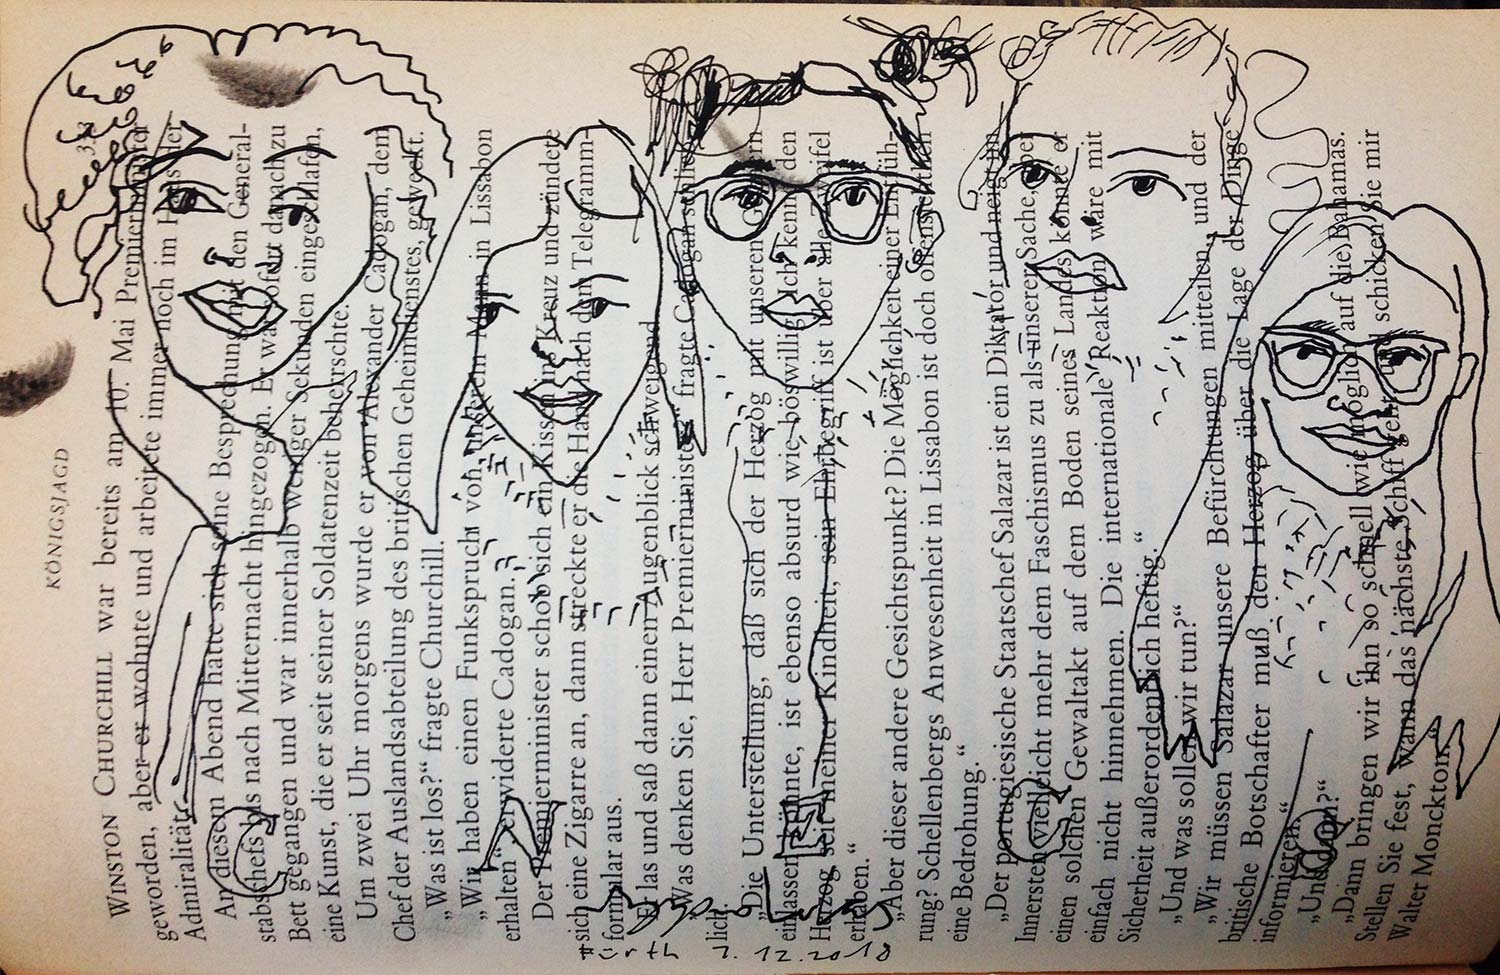 KÖNIGSJAGD
333
WINSTON CHURCHILL war bereits am 10. Mai Premierminister
geworden, aber er wohnte und arbeitete immer noch im Haus der
Admiralität.
An diesem Abend hatte sich seine Besprechung mit den General-
stabschefs bis nach Mitternacht hingezogen. Er war sofort danach zu
Bett gegangen und war innerhalb weniger Sekunden eingeschlafen,
eine Kunst, die er seit seiner Soldatenzeit beherrschte.
Um zwei Uhr morgens wurde er von Alexander Cadogan, dem
Chef der Auslandsabteilung des britischen Geheimdienstes, geweckt.
„Was ist los?“ fragte Churchill.
„Wir haben einen Funkspruch von unserem Mann in Lissabon
erhalten“, erwiderte Cadogan.
Der Premierminister schob sich ein Kissen ins Kreuz und zündete
sich eine Zigarre an, dann streckte er die Hand nach dem Telegramm-
formular aus.
Er las und saß dann einen Augenblick schweigend
„Was denken Sie, Herr Premierminister“ fragte Cadogan schließ-
lich.
„Die Unterstellung, daß sich der Herzog mit unseren Gegnern
einlassen könnte, ist ebenso absurd wie böswillig. Ich kenne den
Herzog seit meiner Kindheit, sein Ehrbegriff ist über alle Zweifel
erhaben.“
„Aber dieser andere Gesichtspunkt? Die Möglichkeit einer Entfüh-
rung? Schellenbergs Anwesenheit in Lissabon ist doch offensichtlich
eine Bedrohung.“
„Der portugiesische Staatschef Salazar ist ein Diktator und neigt im
Innersten vielleicht mehr dem Faschismus zu als unserer Sache, aber
einen solchen Gewaltakt auf dem Boden seines Landes könnte er
einfach nicht hinnehmen. Die internationale Reaktion wäre mit
Sicherheit außerordentlich heftig.“
„Und was sollen wir tun?“
„Wir müssen Salazar unsere Befürchtungen mitteilen, und der
britische Botschafter muß den Herzog über die Lage der Dinge
informieren.“
„Und dann?“
„Dann bringen wir ihn so schnell wie möglich auf die Bahamas.
Stellen Sie fest, wann das nächste Schiff geht und schicken Sie mir
Walter Monckton.“
Fürth 7.12.2018